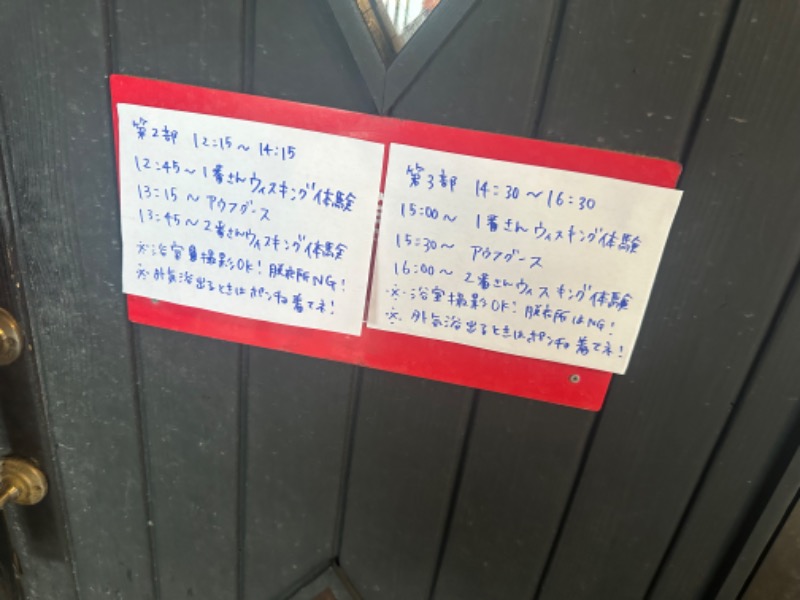 第2部 12:15〜14:15
12:45〜1番さんウィスキング体験
13:15〜アウフグース
13:45〜2番さんウィスキング体験
※浴室撮影OK!脱衣所NG!
※外気浴出るときはポンチョ着てネ!
第3部 14:30〜16:30
15:00〜 1番さんウィスキング体験
15:30〜 アウフグース
16:00〜 2番さんウィスキング体験
※浴室撮影OK!脱衣所はNG!
※外気浴出るときはポンチョ着てネ!